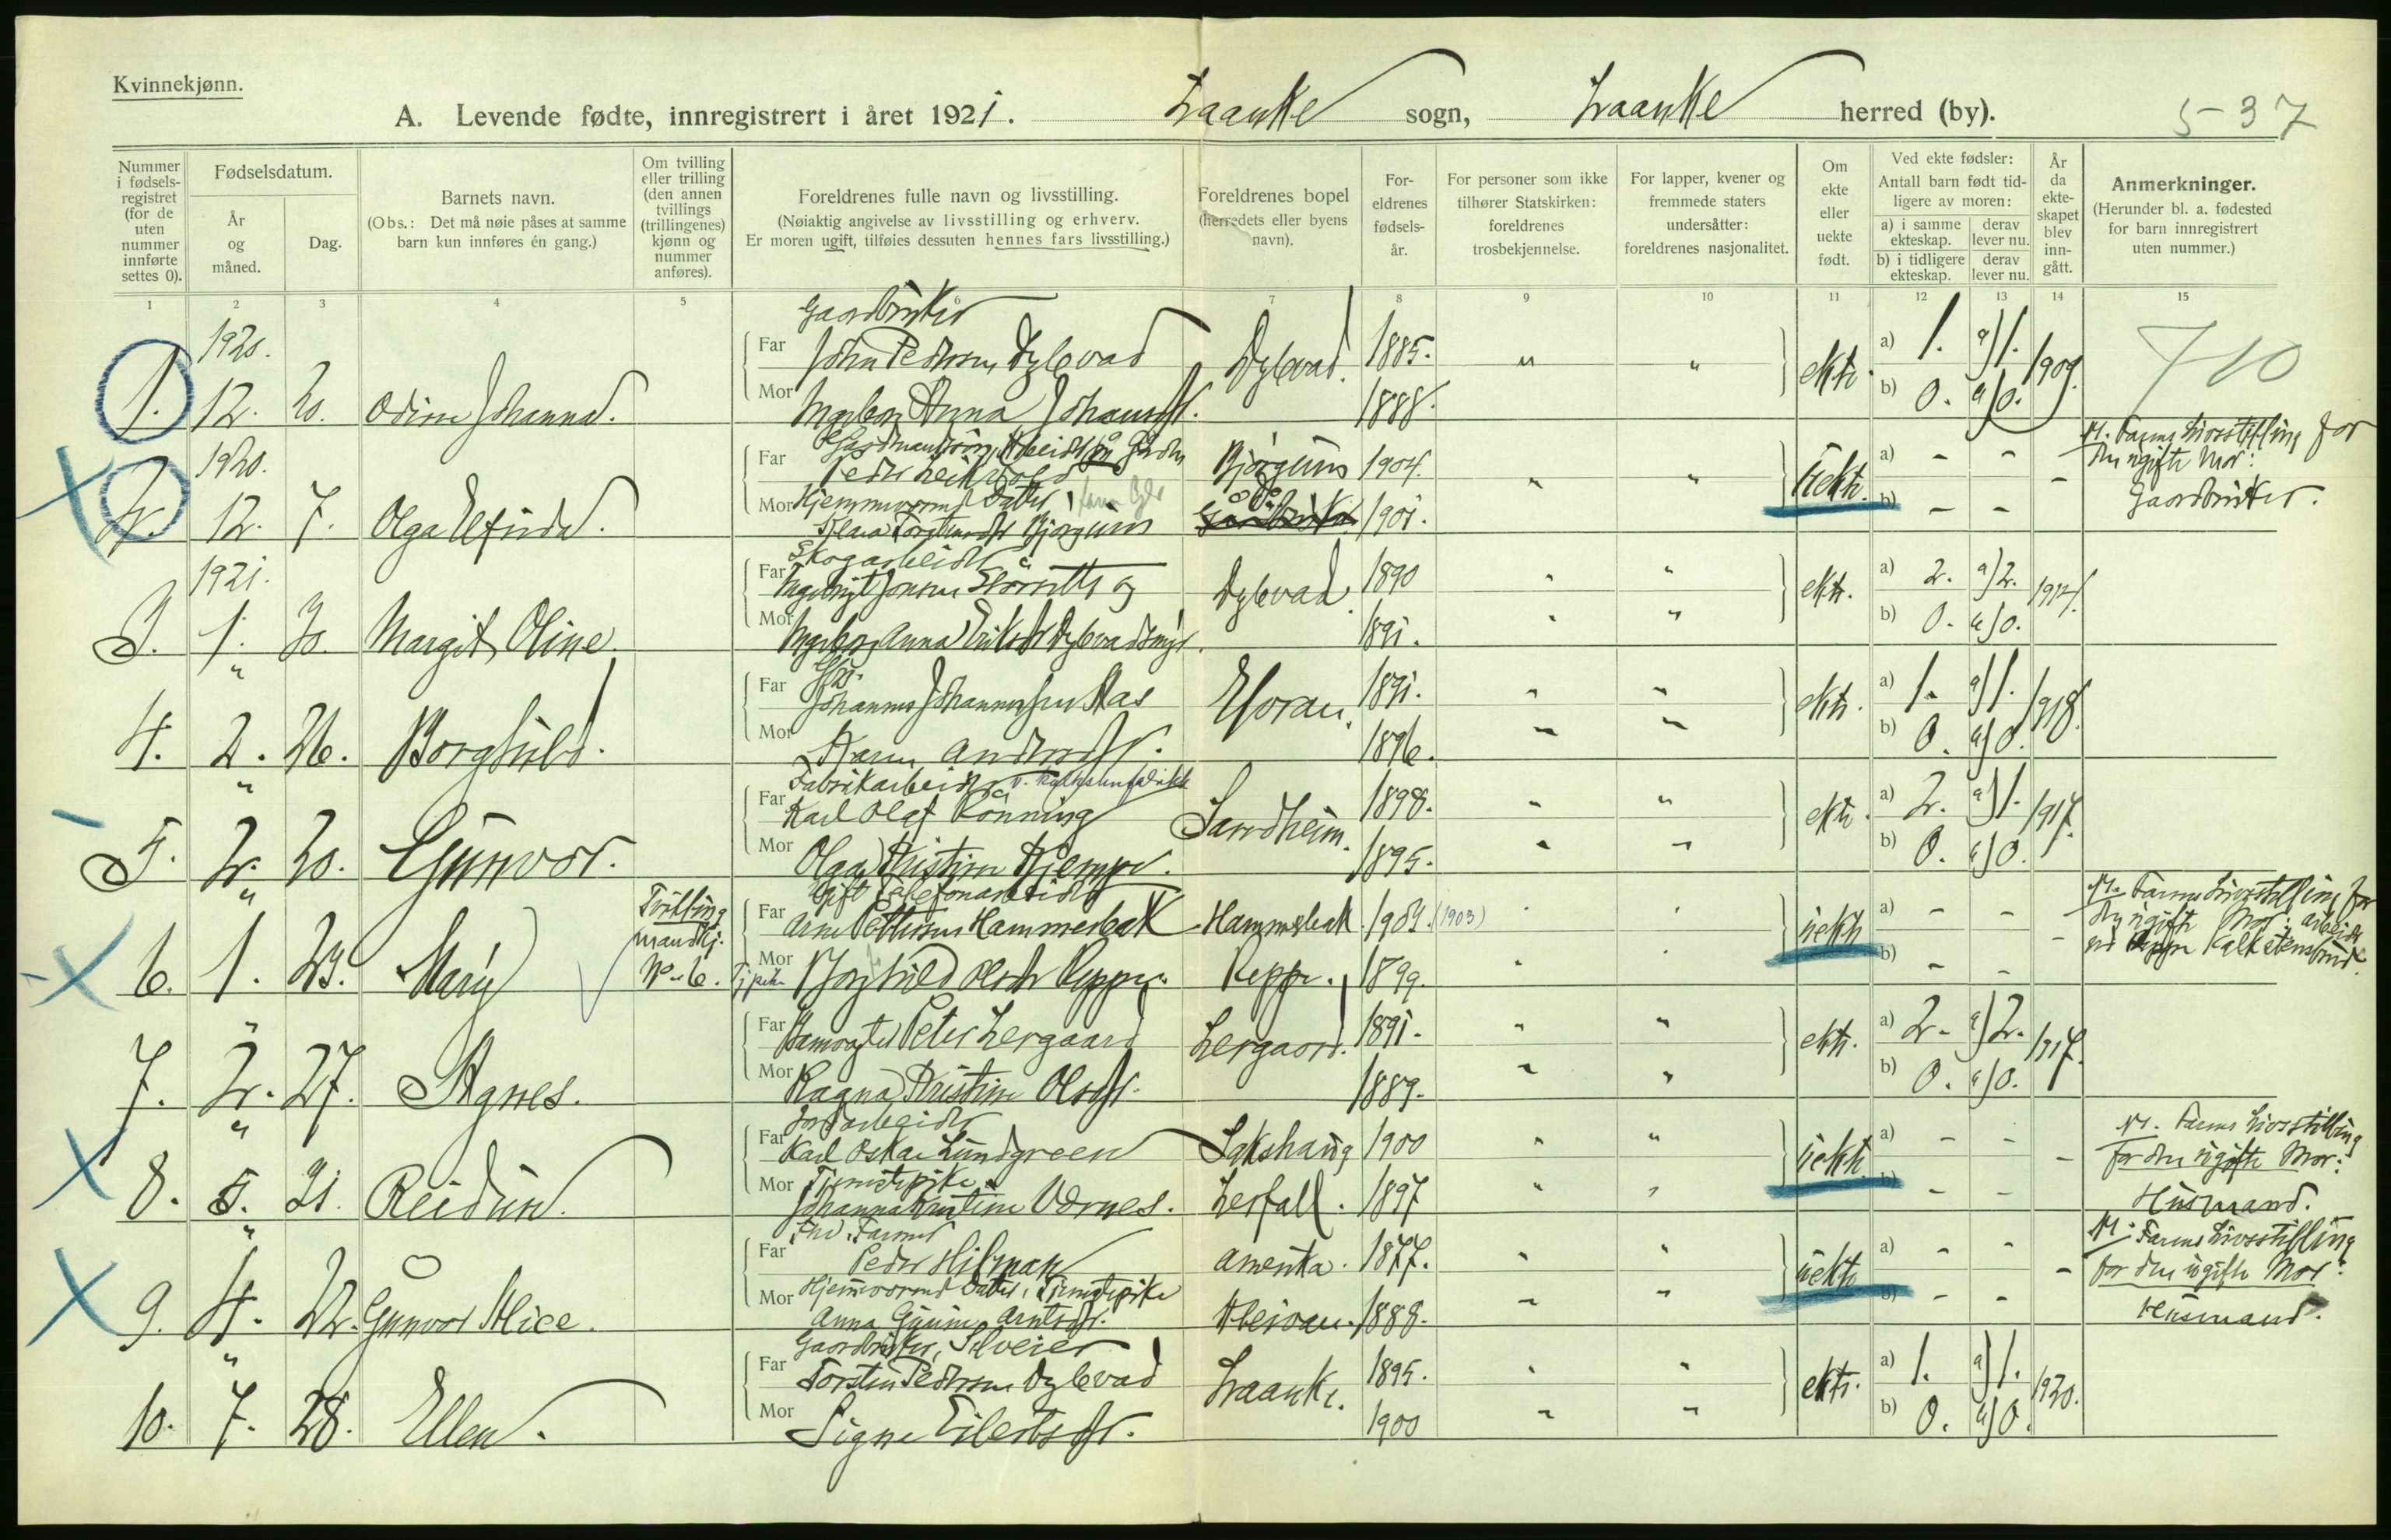 Kvinnekjønn.
A. Levende fødte, innregistrert i året 1921. Laanke sogn, Laanke herred (by). 5-37
Nummer i fødsels-registret (for de uten nummer innførte settes 0).
Fødselsdatum.
År og måned.
Dag.
Barnets navn.
(Obs.: Det må nøie påses at samme barn kun innføres én gang.)
Om tvilling eller trilling (den annen tvillings (trillingenes) kjønn og nummer anføres).
Foreldrenes fulle navn og livsstilling.
(Nøiaktig angivelse av livsstilling og erhverv.
Er moren ugift, tilføies dessuten hennes fars livsstilling.)
Foreldrenes bopel (herredets eller byens navn).
For-eldrenes fødsels-år.
For personer som ikke tilhører Statskirken: foreldrenes trosbekjennelse.
For lapper, kvener og fremmede staters undersåtter: foreldrenes nasjonalitet.
Om ekte eller uekte født.
Ved ekte fødsler: Antall barn født tid-ligere av moren:
a) i samme ekteskap. derav lever nu.
b) i tidligere ekteskap. derav lever nu.
År da ekte-skapet blev inn-gått.
Anmerkninger.
(Herunder bl. a. fødested for barn innregistrert uten nummer.)
1 2 3 4 5 6 7 8 9 10 11 12 13 14 15
Gaardbruker
1920. Far John Pedersen Dyblevad Dyblevad. 1885. " " ekte. a) 1. a) 1. 1909. 710
1. 12. 20. Odine Johanna. Mor Ingeborg Anna Johansdtr. 1888. b) 0. b) 0.
1920. Far Peder Bjørgum 1904. " " uekte. a) - -
Mor Hjemmeværende Datter
2. 12. 7. Olga Elfrida. Klara Bjørgum 1901. b) - -
N. Farens Livsstilling for den ugifte Mor: Gaardbruker.
Skogarbeider
1921. Far Ingebrigt og Dyblevad. 1890 " " ekte. a) 2. a) 2. 1914.
3. 1. 30. Margit Oline. Mor Ingeborg Anna Eriksdtr 1891. b) 0. b) 0.
Far Johannes Johannessen Aas Elvran. 1891. " " ekte. a) 1. a) 1. 1918.
4. 2. 26. Borghild. Mor Karen Andersdtr. 1896. b) 0. b) 0.
Fabrikarbeider
Far Karl Olaf Rønning Sandheim. 1898. " " ekte. a) 2. a) 1. 1917.
5. 2. 20. Gunvor. Mor Olga Kristine Kjempe. 1895. b) 0. b) 0.
Gift Telefonarbeider
Tvilling mandkj. No. 6.
Far Arne Petterson Hammerbak Hammerbak. 1904. (1903) uekte a) - -
6. 1. 23. Mary Mor Tj.pike Borghild Olsdtr Reppe. Reppe. 1899. b) - -
N. Farens Livsstilling for den ugifte Mor: arbeider ved Kalkstensbrud.
Far Peter Lergaard Lergaard. 1891. " " ekte. a) 2. a) 2. 1917.
7. 2. 27. Agnes. Mor Ragna Kristine Olsdtr. 1889. b) 0. b) 0.
Jordarbeider
Far Karl Oskar Lundgreen Sakshaug 1900 " " uekte. a) - -
Mor Tjenestepike
8. 5. 21. Reidun. Johanna Kristine Værnes. Lerfall. 1897 b) - -
N. Farens Livsstilling for den ugifte Mor: Husmand.
Far Peder Hilman Amerika. 1877. " " uekte a) - -
Mor Hjemmeværende Datter, Tjenestepike
9. 4. 22. Gunvor Alice. Anna Arntsdtr. 1888. b) - -
N. Farens Livsstilling for den ugifte Mor: Husmand.
Gaardbruker, Selveier
Far Torsten Pedersen Dyblevad Laanke. 1895. " " ekte. a) 1. a) 1. 1920.
10. 7. 28. Ellen. Mor Signe Eilertsdtr. 1900 b) 0. b) 0.